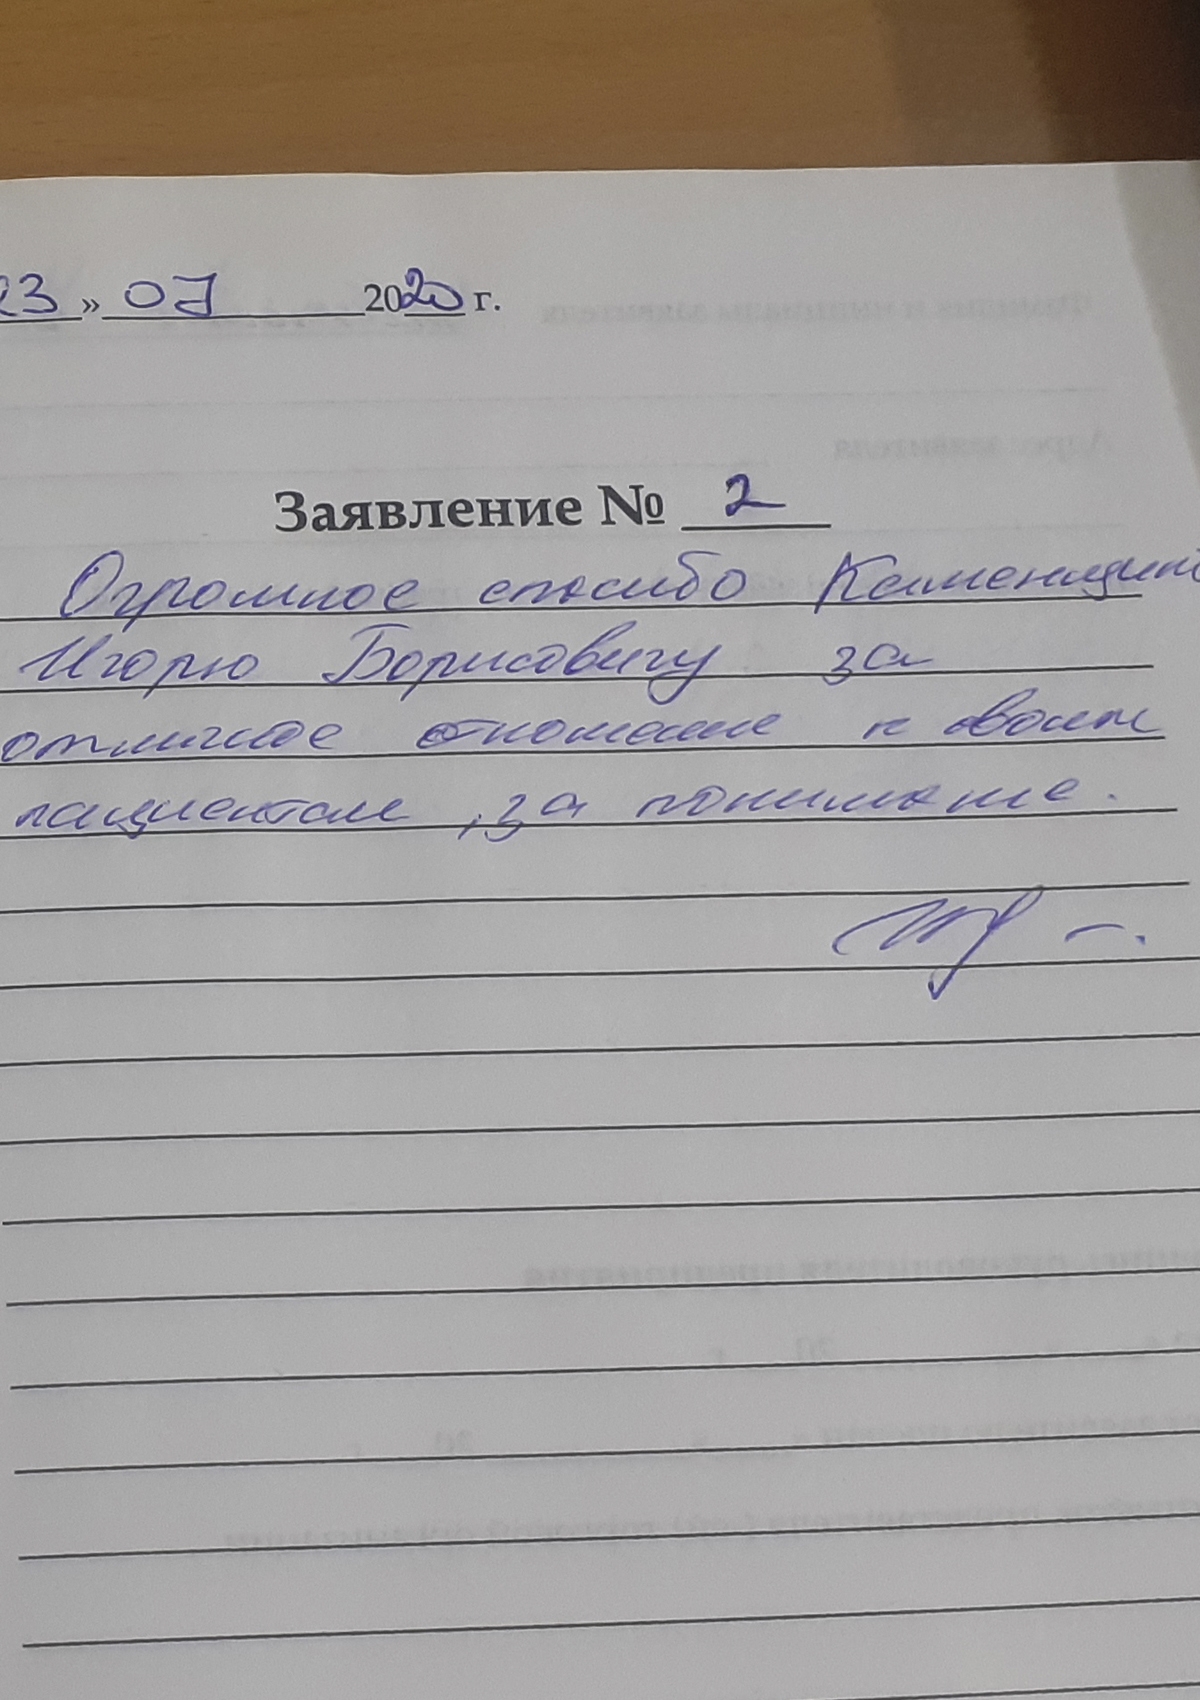 23 » 07 2020 г.
Заявление № 2
Огромное спасибо
Игорю Борисовичу за
отличное отношение к своим
пациентам, за понимание.